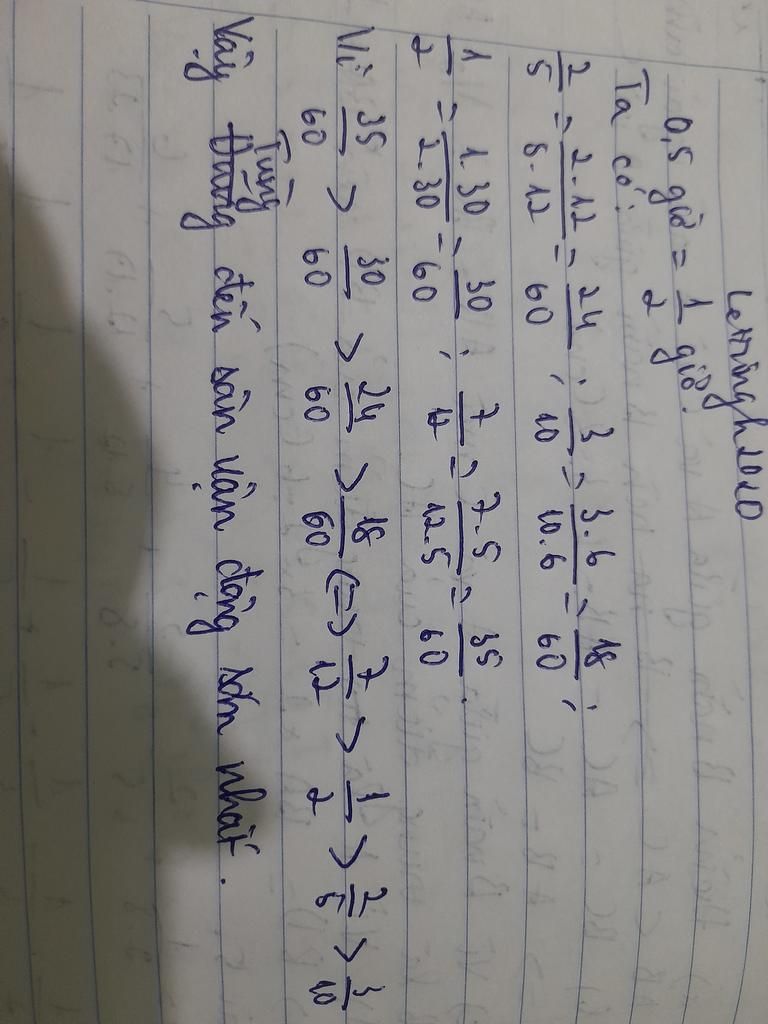 Leminh2020
0,5 giờ = 1/2 giờ.
Ta có:
2/5 = 2.12/5.12 = 24/60 ; 3/10 = 3.6/10.6 = 18/60 ;
1/2 = 1.30/2.30 = 30/60 ; 7/12 = 7.5/12.5 = 35/60 .
Vì 35/60 > 30/60 > 24/60 > 18/60 (=) 7/12 > 1/2 > 2/5 > 3/10
Vậy Tùng đến sân vận động sớm nhất.